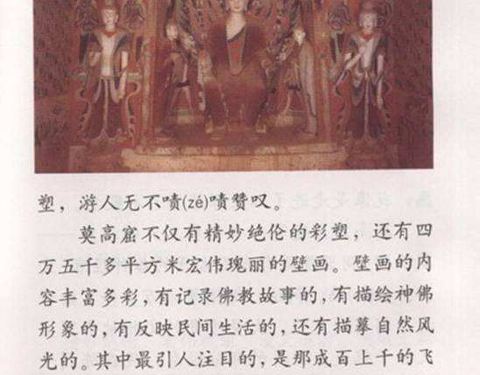 塑，游人无不啧(zé)啧赞叹。
莫高窟不仅有精妙绝伦的彩塑，还有四
万五千多平方米宏伟瑰丽的壁画。壁画的内
容丰富多彩，有记录佛教故事的，有描绘神佛
形象的，有反映民间生活的，还有描摹自然风
光的。其中最引人注目的，是那成百上千的飞